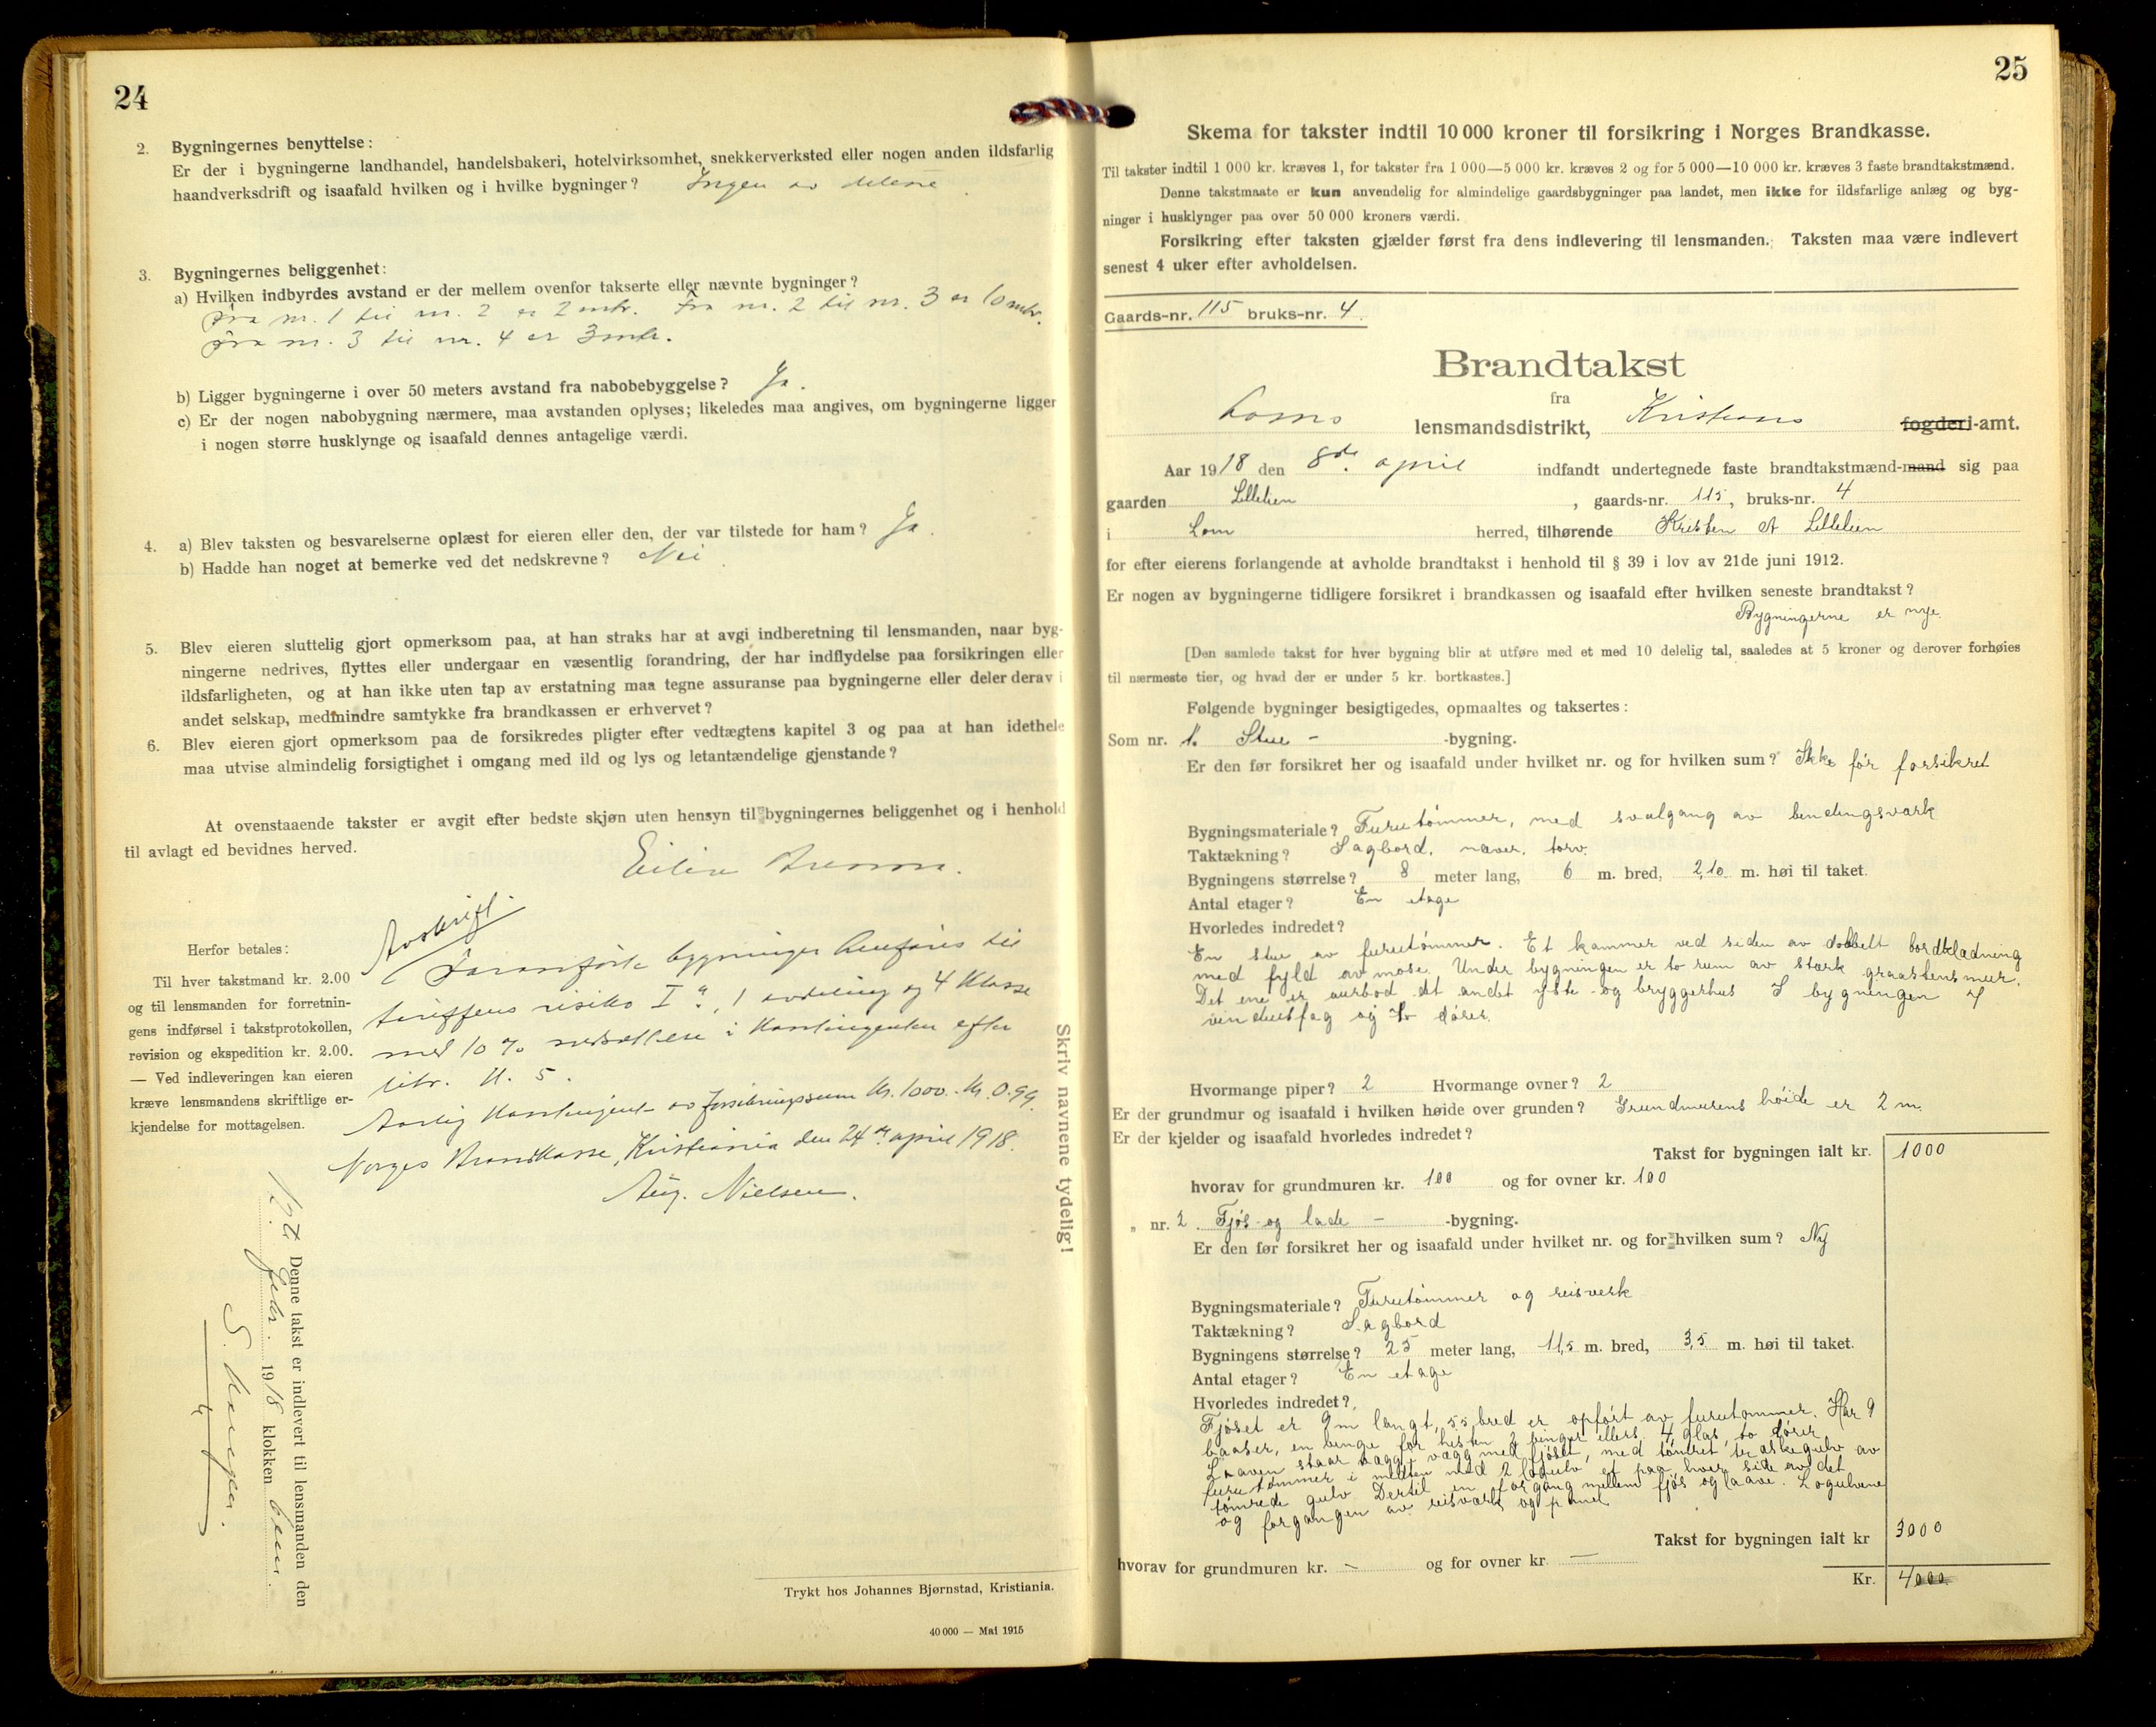 24
2. Bygningernes benyttelse:
Er der i bygningerne landhandel, handelsbakeri, hotelvirksomhet, snekkerverksted eller nogen anden ildsfarlig
haandverksdrift og isaafald hvilken og i hvilke bygninger? Ingen av delene
3. Bygningernes beliggenhet:
a) Hvilken indbyrdes avstand er der mellem ovenfor takserte eller nævnte bygninger?
Fra nr. 1 til nr. 2 er 2 mtr. Fra nr. 2 til nr. 3 er 10 mtr.
Fra nr. 3 til nr. 4 er 3 mtr.
b) Ligger bygningerne i over 50 meters avstand fra nabobebyggelse? Ja.
c) Er der nogen nabobygning nærmere, maa avstanden oplyses; likeledes maa angives, om bygningerne ligger
i nogen større husklynge og isaafald dennes antagelige værdi.
4. a) Blev taksten og besvarelserne oplæst for eieren eller den, der var tilstede for ham? Ja.
b) Hadde han noget at bemerke ved det nedskrevne? Nei
5. Blev eieren sluttelig gjort opmerksom paa, at han straks har at avgi indberetning til lensmanden, naar byg-
ningerne nedrives, flyttes eller undergaar en væsentlig forandring, der har indflydelse paa forsikringen eller
ildsfarligheten, og at han ikke uten tap av erstatning maa tegne assuranse paa bygningerne eller deler derav i
andet selskap, medmindre samtykke fra brandkassen er erhvervet?
6. Blev eieren gjort opmerksom paa de forsikredes pligter efter vedtægtens kapitel 3 og paa at han idethele
maa utvise almindelig forsigtighet i omgang med ild og lys og letantændelige gjenstande?
At ovenstaaende takster er avgit efter bedste skjøn uten hensyn til bygningernes beliggenhet og i henhold
til avlagt ed bevidnes herved.
Avskrift.
Foranførte bygninger henføres til
tariffens risiko I a, 1 avdeling og 4 Klasse
med 10 % nedsættelse i Kontingenten efter
litr. U. 5.
Aarlig Kontingent av forsikringssum Kr. 1000.- Kr. 0.99.
Norges Brandkasse, Kristiania den 24 de april 1918.
Aug. Nielsen.
Herfor betales:
Til hver takstmand kr. 2.00
og til lensmanden for forretnin-
gens indførsel i takstprotokollen,
revision og ekspedition kr. 2.00.
— Ved indleveringen kan eieren
kræve lensmandens skriftlige er-
kjendelse for mottagelsen.
Denne takst er indlevert til lensmanden den
febr. 1918 klokken
Skriv navnene tydelig!
Trykt hos Johannes Bjørnstad, Kristiania.
40 000 — Mai 1915
25
Skema for takster indtil 10 000 kroner til forsikring i Norges Brandkasse.
Til takster indtil 1 000 kr. kræves 1, for takster fra 1 000—5 000 kr. kræves 2 og for 5 000—10 000 kr. kræves 3 faste brandtakstmænd.
Denne takstmaate er kun anvendelig for almindelige gaardsbygninger paa landet, men ikke for ildsfarlige anlæg og byg-
ninger i husklynger paa over 50 000 kroners værdi.
Forsikring efter taksten gjælder først fra dens indlevering til lensmanden. Taksten maa være indlevert
senest 4 uker efter avholdelsen.
Gaards-nr. 115 bruks-nr. 4.
Brandtakst
fra
Loms lensmandsdistrikt, Kristians fogderi-amt.
Aar 1918 den 8de april indfandt undertegnede faste brandtakstmænd-mand sig paa
gaarden Lillelien, gaards-nr. 115, bruks-nr. 4
i Lom herred, tilhørende Kristen A Lillelien
for efter eierens forlangende at avholde brandtakst i henhold til § 39 i lov av 21de juni 1912.
Er nogen av bygningerne tidligere forsikret i brandkassen og isaafald efter hvilken seneste brandtakst?
Bygningerne er nye.
[Den samlede takst for hver bygning blir at utføre med et med 10 delelig tal, saaledes at 5 kroner og derover forhøies
til nærmeste tier, og hvad der er under 5 kr. bortkastes.]
Følgende bygninger besigtigedes, opmaaltes og taksertes:
Som nr. 1. Stue - -bygning.
Er den før forsikret her og isaafald under hvilket nr. og for hvilken sum? Ikke før forsikret
Bygningsmateriale? Furutømmer, med svalgang av bindingsværk
Taktækning? Sagbord, næver, torv.
Bygningens størrelse? 8 meter lang, 6 m. bred, 2,10 m. høi til taket.
Antal etager? En etage
Hvorledes indredet?
En stue av furutømmer. Et kammer ved siden av dobbelt bordklædning
med fyld av mose. Under bygningen er to rum av stærk graastensmur.
Det ene er aurbod det andet yste- og bryggerhus I bygningen 7
vinduesfag og to dører.
Hvormange piper? 2 Hvormange ovner? 2
Er der grundmur og isaafald i hvilken høide over grunden? Grundmurens høide er 2 m.
Er der kjelder og isaafald hvorledes indredet?
Takst for bygningen ialt kr. 1000
hvorav for grundmuren kr. 100 og for ovner kr. 100
„ nr. 2. Fjøs- og lade - -bygning.
Er den før forsikret her og isaafald under hvilket nr. og for hvilken sum? Ny
Bygningsmateriale? Furutømmer og reisverk
Taktækning? Sagbord
Bygningens størrelse? 25 meter lang, 11,5 m. bred, 3,5 m. høi til taket.
Antal etager? En etage
Hvorledes indredet?
Fjøset er 9m langt, 5,5 bred er opført av furutømmer. Har 9
baaser, en binge for hesten 2 binger ellers. 4 glas, to dører
Laaven staar vægg i vægg med fjøset, med tømret træskegulv av
furutømmer i midten med 2 logulv et paa hver side av det
tømrede gulv Dertil en forgang mellem fjøs og laave. Logulvene
og forgangen av reisværk og panel
Takst for bygningen ialt kr 3000
hvorav for grundmuren kr. - og for ovner kr. —
Kr. 4000